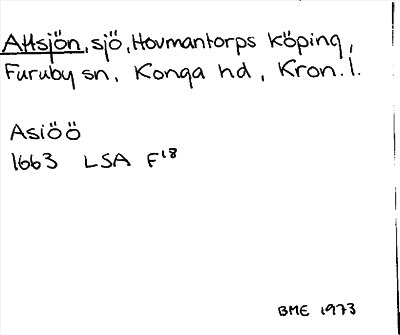 Attsjön, sjö, Hovmantorps köping,
Furuby sn, Konga hd, Kron. l.
Asiöö
1663 LSA F18
BME 1973